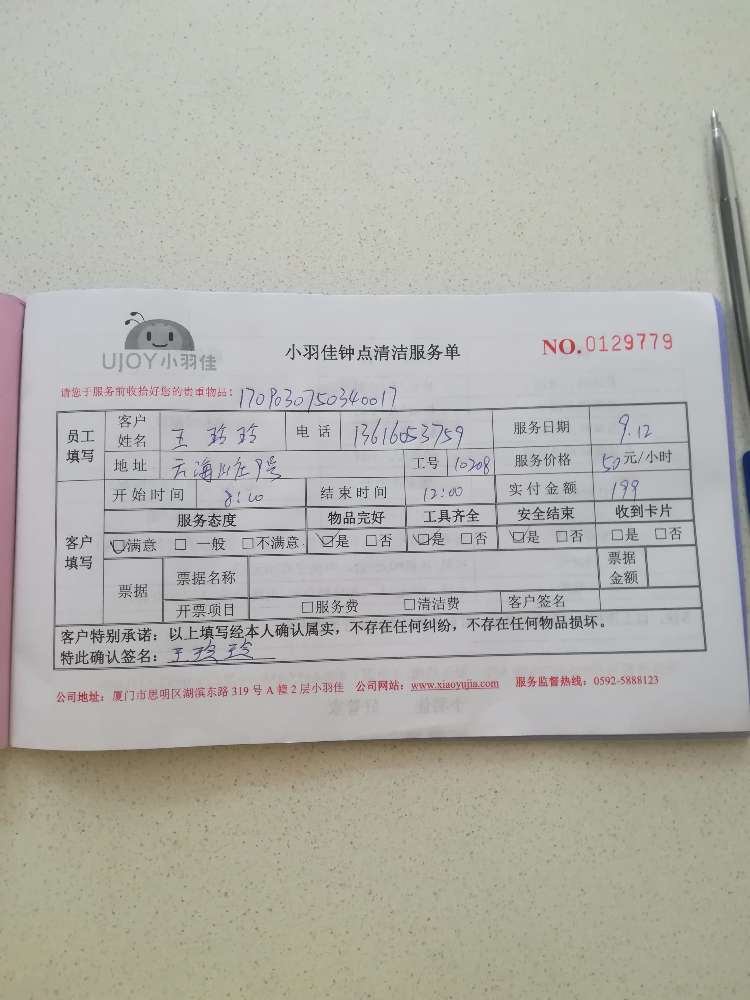 UJOY小羽佳
小羽佳钟点清洁服务单
NO.0129779
请您于服务前收拾好您的贵重物品：1709030750340017
员工填写 客户姓名 王玲玲 电话 13616053759 服务日期 9.12
地址 天海山庄9号 工号 10208 服务价格 50元/小时
客户填写 开始时间 8:10 结束时间 12:00 实付金额 199
服务态度 物品完好 工具齐全 安全结束 收到卡片
☑满意 □一般 □不满意 ☑是 □否 ☑是 □否 ☑是 □否 □是 □否
票据 票据名称 票据金额
开票项目 □服务费 □清洁费 客户签名
客户特别承诺：以上填写经本人确认属实，不存在任何纠纷，不存在任何物品损坏。
特此确认签名：王玲玲
公司地址：厦门市思明区湖滨东路319号A幢2层小羽佳 公司网站：www.xiaoyujia.com 服务监督热线：0592-5888123